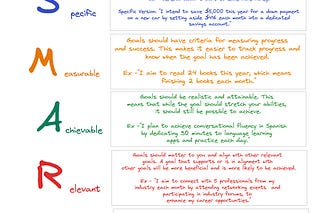 S pecific
Specific Version: "I intend to save $5,000 this year for a down payment
on a new car by setting aside $416 each month into a dedicated
savings account."
M easurable
Goals should have criteria for measuring progress
and success. This makes it easier to track progress and
know when the goal has been achieved.
Ex - "I aim to read 24 books this year, which means
finishing 2 books each month."
A chievable
Goals should be realistic and attainable. This
means that while the goal should stretch your abilities,
it should still be possible to achieve.
Ex - "I plan to achieve conversational fluency in Spanish
by dedicating 30 minutes to language learning
apps and practice each day."
R elevant
Goals should matter to you and align with other relevant
goals. A goal that supports or is in alignment with
other goals will be more beneficial and is more likely to be achieved.
Ex - "I aim to connect with 5 professionals from my
industry each month by attending networking events and
participating in industry forums, to
enhance my career opportunities."